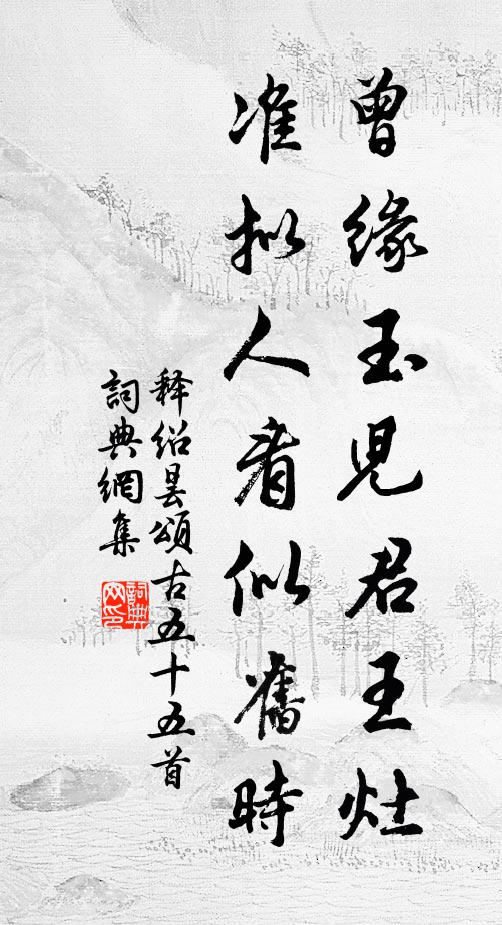 曾緣玉皃君王灶
准拟人看似舊時
释紹曇頌古五十五首
詞典網集
詞典网印